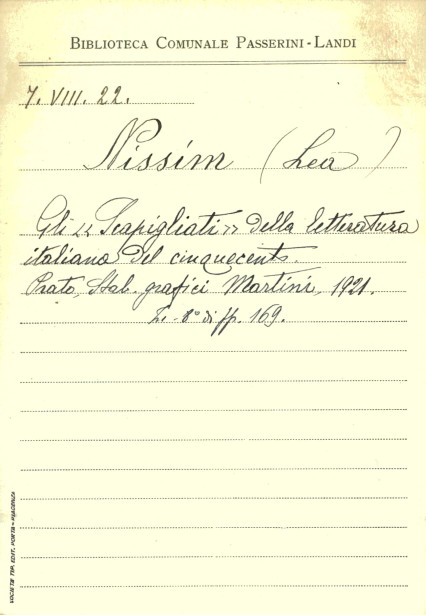 BIBLIOTECA COMUNALE PASSERINI-LANDI
7. VIII. 22.
Nissim (Lea)
Gli « Scapigliati » della letteratura
italiana del cinquecento.
Prato, Stab. grafici Martini, 1921.
8° di pp. 169.
SOCIETÀ TIP. EDIT. PORTA - PIACENZA